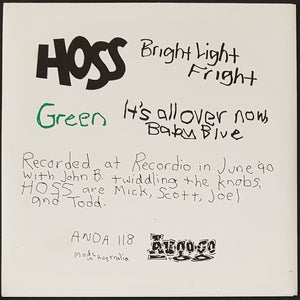 HOSS Bright Light
Fright
Green It's all over now
Baby Blue
Recorded at Recordio in June '90
with John B. twiddling the knobs.
HOSS are Mick, Scott, Joel
and Todd.
ANDA 118
Made in Australia
Au-go-go